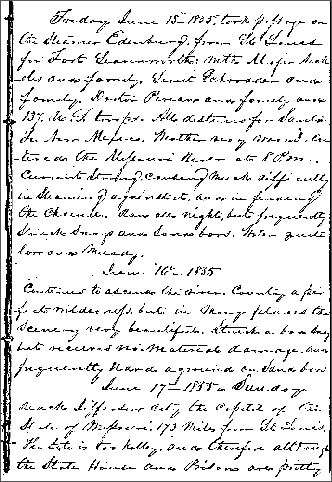 Friday June 15 1855, took passage on
the Steamer Edenburg, from St Louis
for Fort Leavenworth, with Major
and family, Lieut Schroeder and
family, Doctor and family and
137 U.S. troops. All destined for Santa
Fe New Mexico. Weather very warm. En
tered the Missouri River at 8 P.M.
Current strong, causing much difficulty
in steaming against it, and in finding
the Channel. Ran all night, but frequently
struck snags and sand bars. River quite
low and Muddy.
June 16th 1855
Continue to ascend the river. Country a per
fect wilderness, but in Many places the
scenery very beautiful. Struck a
but received no Material damage. and
frequently hard aground on Sand bars
June 17th 1855 Sunday
reach Jefferson City the Capitol of the
State of Missouri, 173 Miles from St Louis.
The site is too hilly, and therefore although
the State House and are pretty